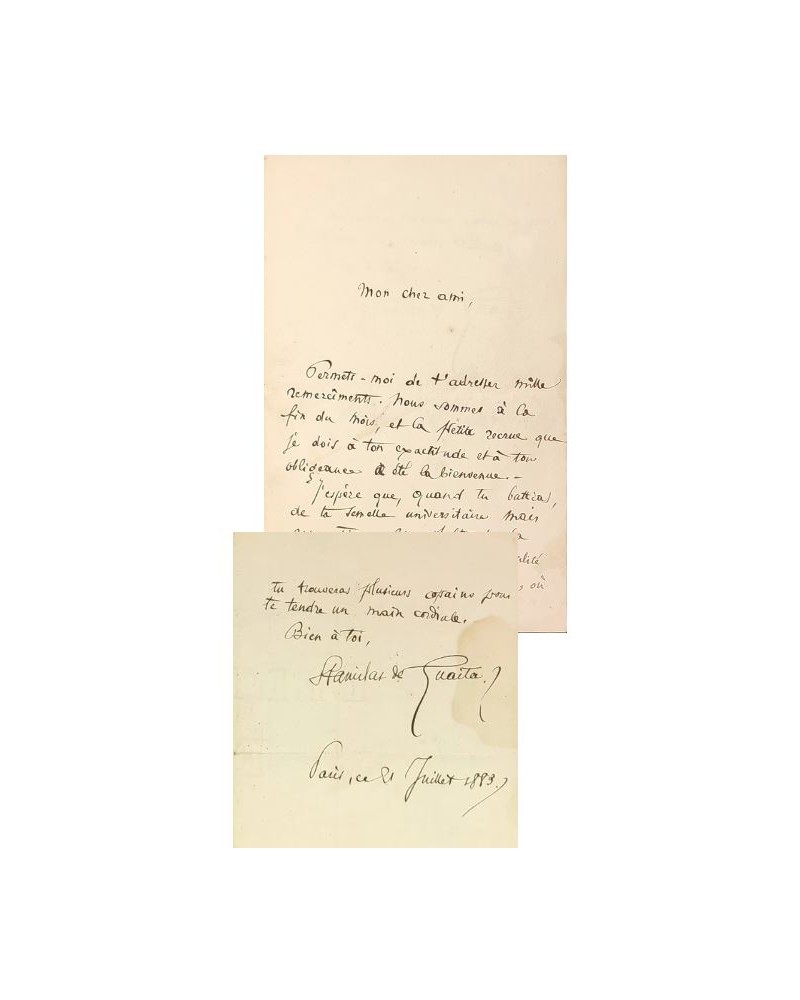 Mon cher ami,
Permets-moi de t'adresser mille
remercîments. Nous sommes à la
fin du mois, et la petite recrue que
je dois à ton exactitude et à ton
obligeance a été la bienvenue. -
J'espère que, quand tu battras,
de ta semelle universitaire mais
, où
tu trouveras plusieurs copains pour
te tendre un main cordiale.
Bien à toi,
Stanislas de Guaita.
Paris, ce 21 Juillet 1883.